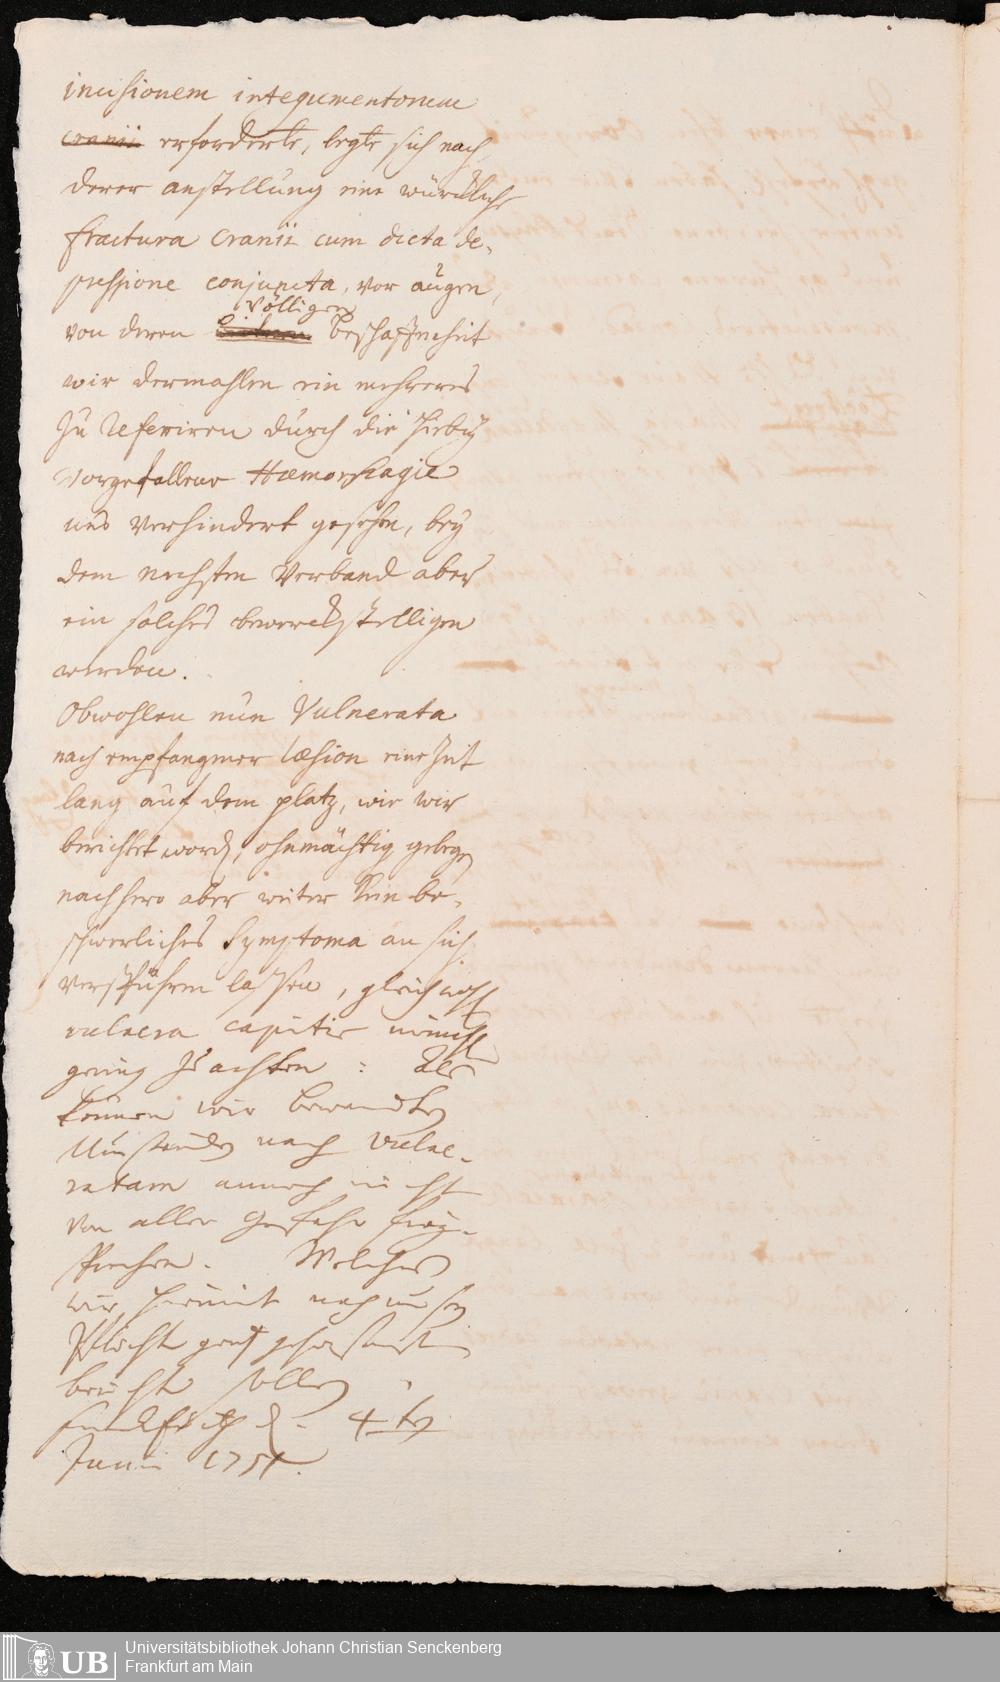 incisionem integumentorum
cranii erforderte, legte sich nach
derer anstellung eine würckliche
fractura cranii cum dicta de-
pressione conjuncta, vor augen,
völligen
von deren beschaffenheit
wir dermahlen ein mehreres
zu referiren durch die hirbey
vorgefallene Hæmorrhagie
uns verhindert gesehen, bey
dem nechsten Verband aber
ein solches bewerckstelligen
werden.
Obwohlen nun Vulnerata
nach empfangener læsion eine Zeit
lang auf dem platz, wie wir
berichtet word, ohnmächtig gelegen
nachhero aber weiter kein be-
schwerliches Symptoma an sich
verspühren lassen, gleichwohl
vulnera capitis niemahl
gering zu achten: Als
können wir bewandten
Umständen nach Vulne-
ratam annoch nicht
von aller Gefahr frey-
sprechen. Welches
wir hiemit nach unsern
Pflicht gehorsamst
bericht sollen
4ten
Junii 1751.
Universitätsbibliothek Johann Christian Senckenberg
Frankfurt am Main
UB